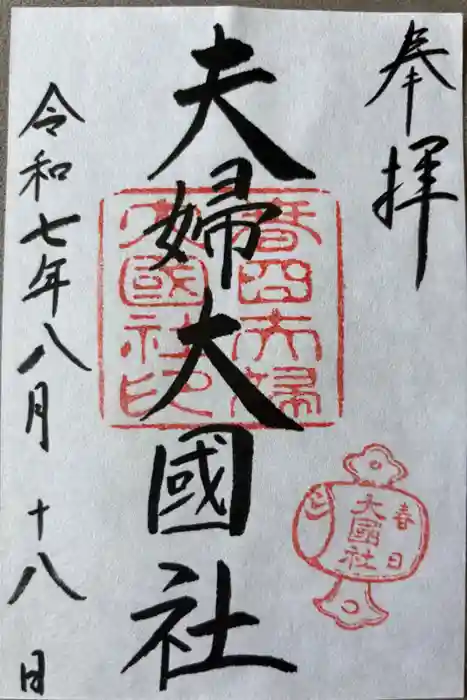 奉拝
夫婦大國社
春日夫婦
大國社印
春日
大國社
令和七年八月十八日